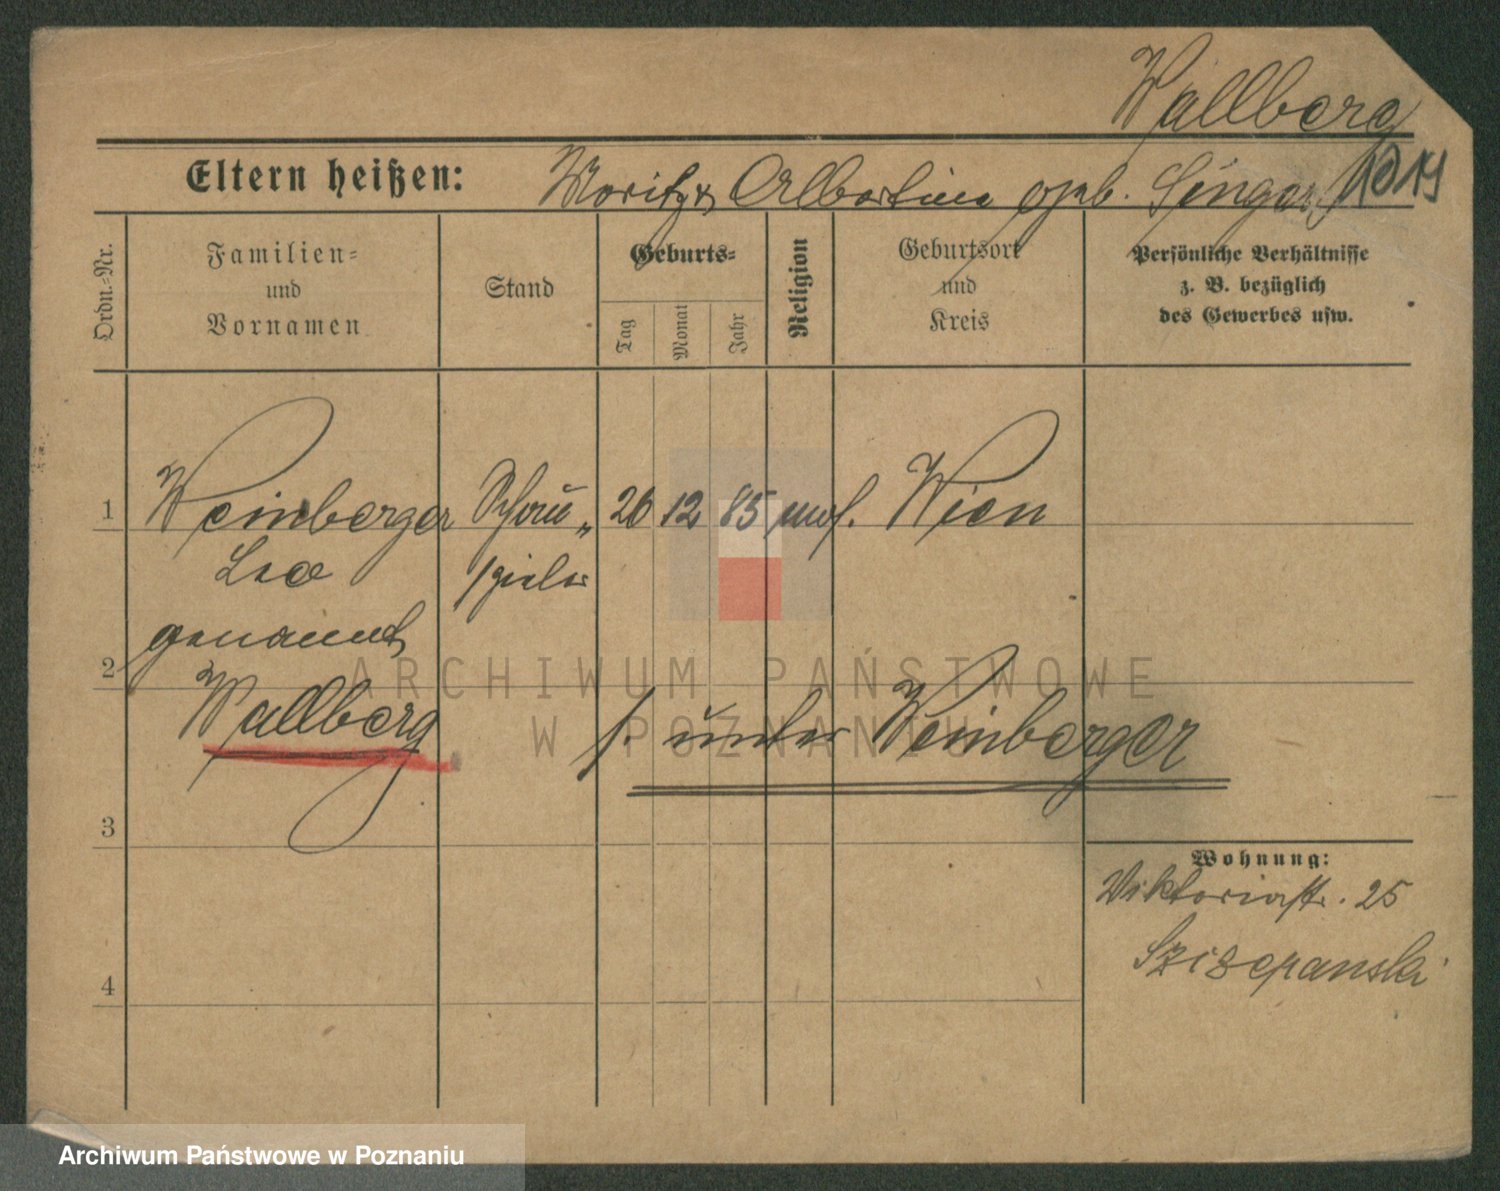 Wallberg
Eltern heißen: Moritz & Albertine geb. Singer
Ordn.-Nr.
Familien-
und
Vornamen
Stand
Geburts-
Tag
Monat
Jahr
Religion
Geburtsort
und
Kreis
Persönliche Verhältnisse
z. B. bezüglich
des Gewerbes usw.
1 Weinberger Schau- 26 12 85 mos. Wien
Leo spieler
genannt
2
Wallberg
s. unter Weinberger
3
Wohnung:
Viktoriastr. 25
Szczepanski
4
ARCHIWUM PAŃSTWOWE
W POZNANIU
Archiwum Państwowe w Poznaniu